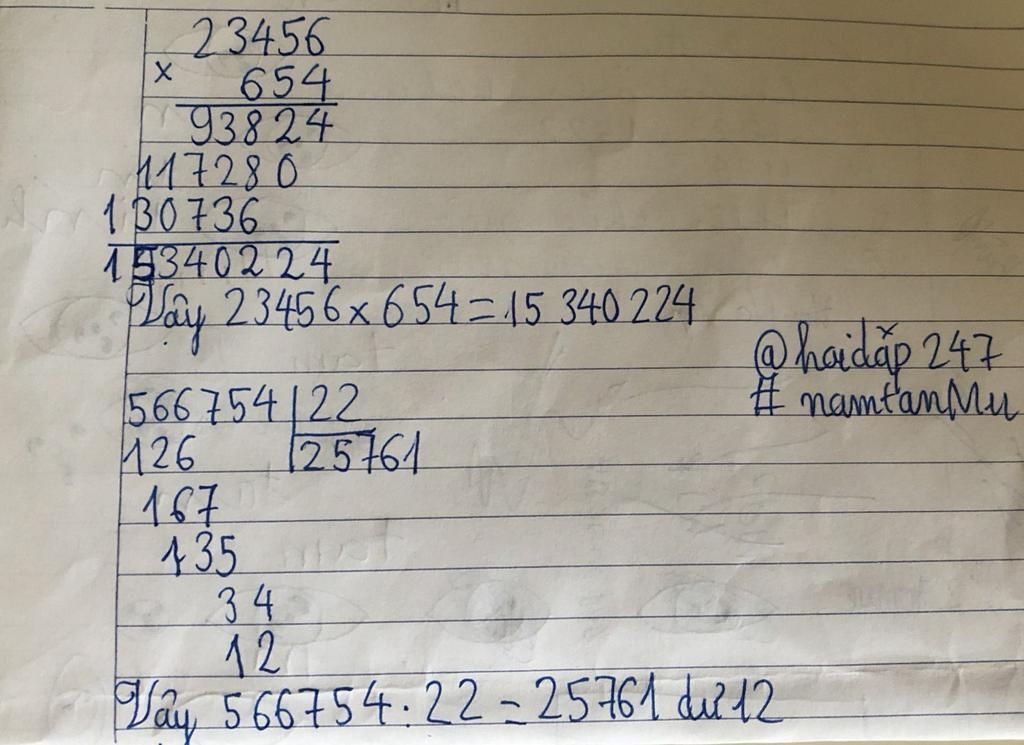 23456
× 654
93824
117280
130736
15340224
Vậy 23456 x 654 = 15 340 224
@hoidắp 247
# namtanMu
566754 | 22
126 | 25761
167
135
34
12
Vậy 566754 : 22 = 25761 dư 12